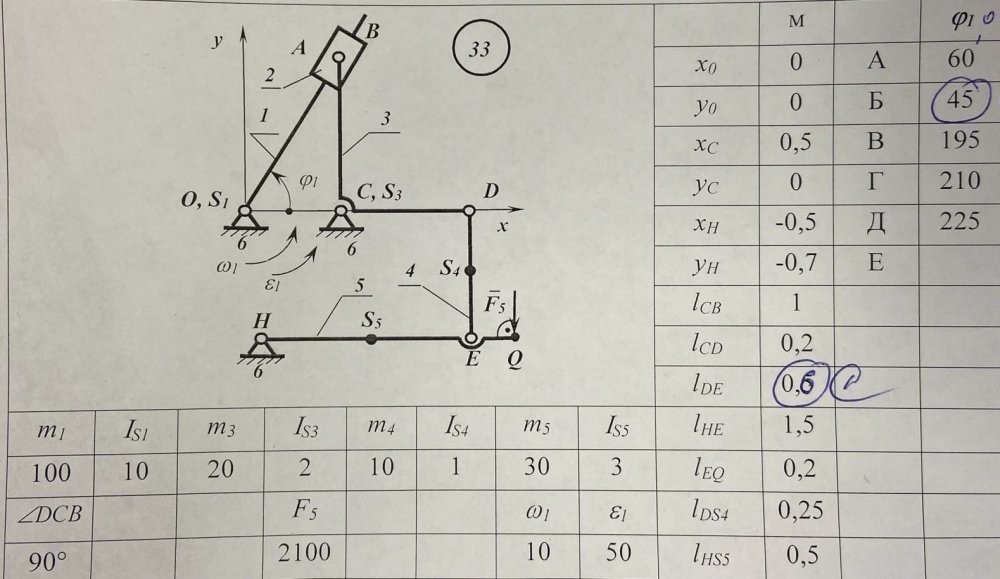 y
A
B
33
2
1
3
φ1
O, S1
C, S3
D
x
6
6
ω1
ε1
S4
4
5
F̅5
H
S5
E
Q
6
м φ1, °
x0 0 А 60
y0 0 Б 45
xC 0,5 В 195
yC 0 Г 210
xH -0,5 Д 225
yH -0,7 Е
lCB 1
lCD 0,2
lDE 0,6
lHE 1,5
lEQ 0,2
lDS4 0,25
lHS5 0,5
m1 IS1 m3 IS3 m4 IS4 m5 IS5
100 10 20 2 10 1 30 3
∠DCB F5 ω1 ε1
90° 2100 10 50